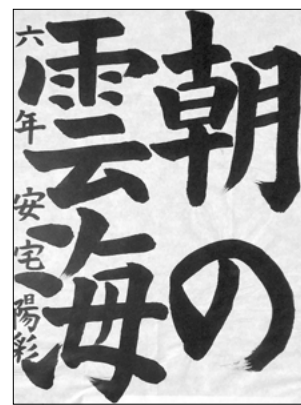 朝の
雲海
六年 安宅陽彩